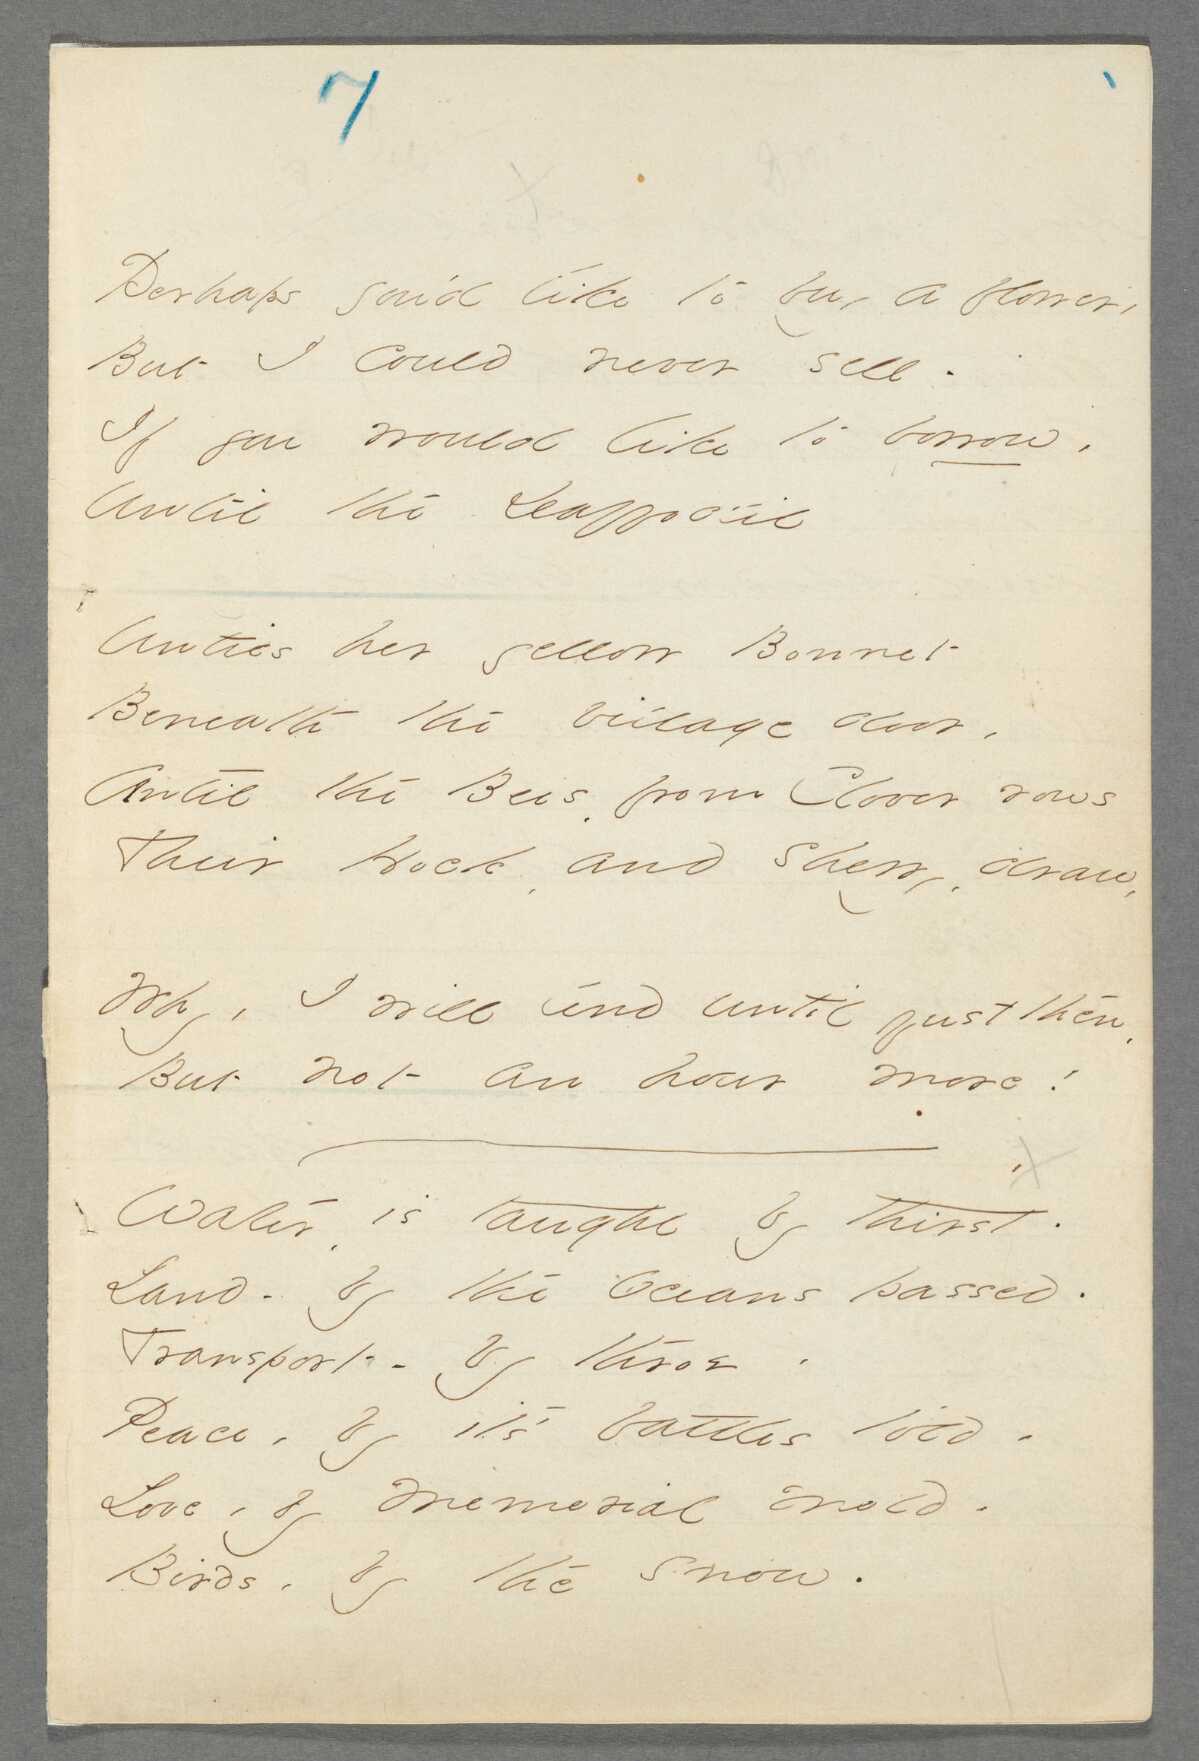 7
Perhaps you'd like to buy a flower,
But I could never sell -
If you would like to borrow,
Until the Daffodil
Unties her yellow Bonnet
Beneath the village door,
Until the Bees, from Clover rows
Their Hock, and Sherry, draw,
Why, I will lend until just then,
But not an hour more!
Water, is taught by thirst.
Land - by the Oceans passed.
Transport - by throe -
Peace, by it's battles told -
Love, by memorial mold -
Birds, by the snow.